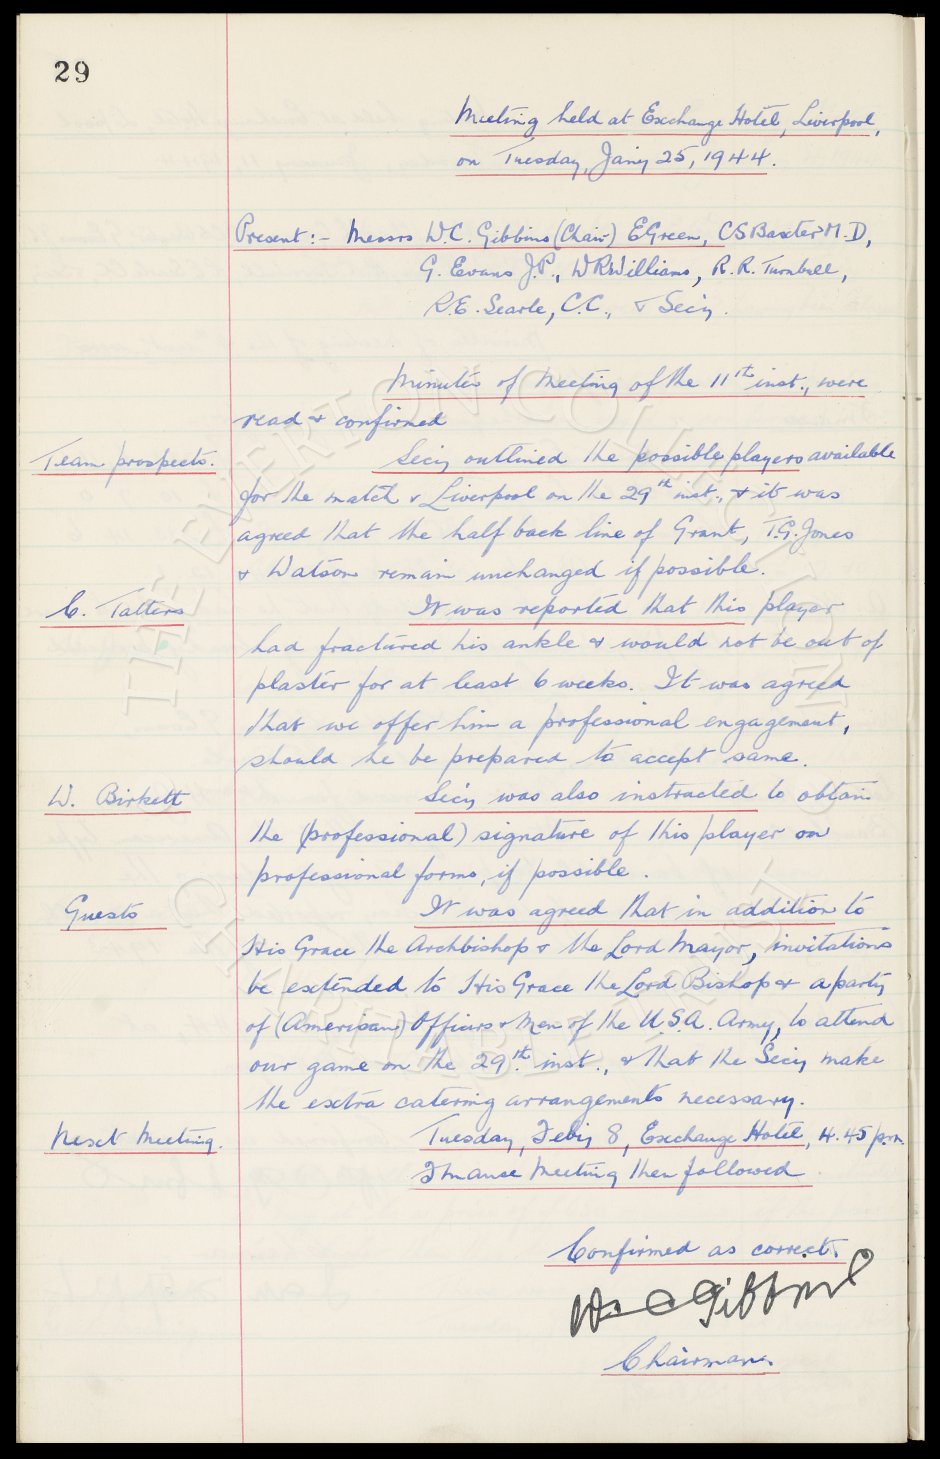 29
Meeting held at Exchange Hotel, Liverpool,
on Tuesday, Jany 25, 1944.
Present:- Messrs W.C. Gibbins (Chair) E Green, C S Baxter M.D,
G. Evans J.P., W R Williams, R.R. Turnbull,
R.E. Searle, C.C., & Secy.
Minutes of Meeting of the 11th inst., were
read & confirmed
Team prospects.
Secy outlined the possible players available
for the match v Liverpool on the 29th inst., & it was
agreed that the half back line of Grant, T.G. Jones
& Watson remain unchanged if possible.
C. Tatters
It was reported that this player
had fractured his ankle & would not be out of
plaster for at least 6 weeks. It was agreed
that we offer him a professional engagement,
should he be prepared to accept same.
W. Birkett
Secy was also instructed to obtain
the (professional) signature of this player on
professional forms, if possible.
Guests
It was agreed that in addition to
His Grace the Archbishop & the Lord Mayor, invitations
be extended to His Grace the Lord Bishop & a party
of (American) Officers & Men of the U.S.A. Army, to attend
our game on the 29th. inst., & that the Secy make
the extra catering arrangements necessary.
Next Meeting.
Tuesday, Feby 8, Exchange Hotel, 4.45 p.m.
Finance Meeting then followed.
Confirmed as correct.
W C Gibbins
Chairman.
THE EVERTON COLLECTION
CHARITABLE TRUST